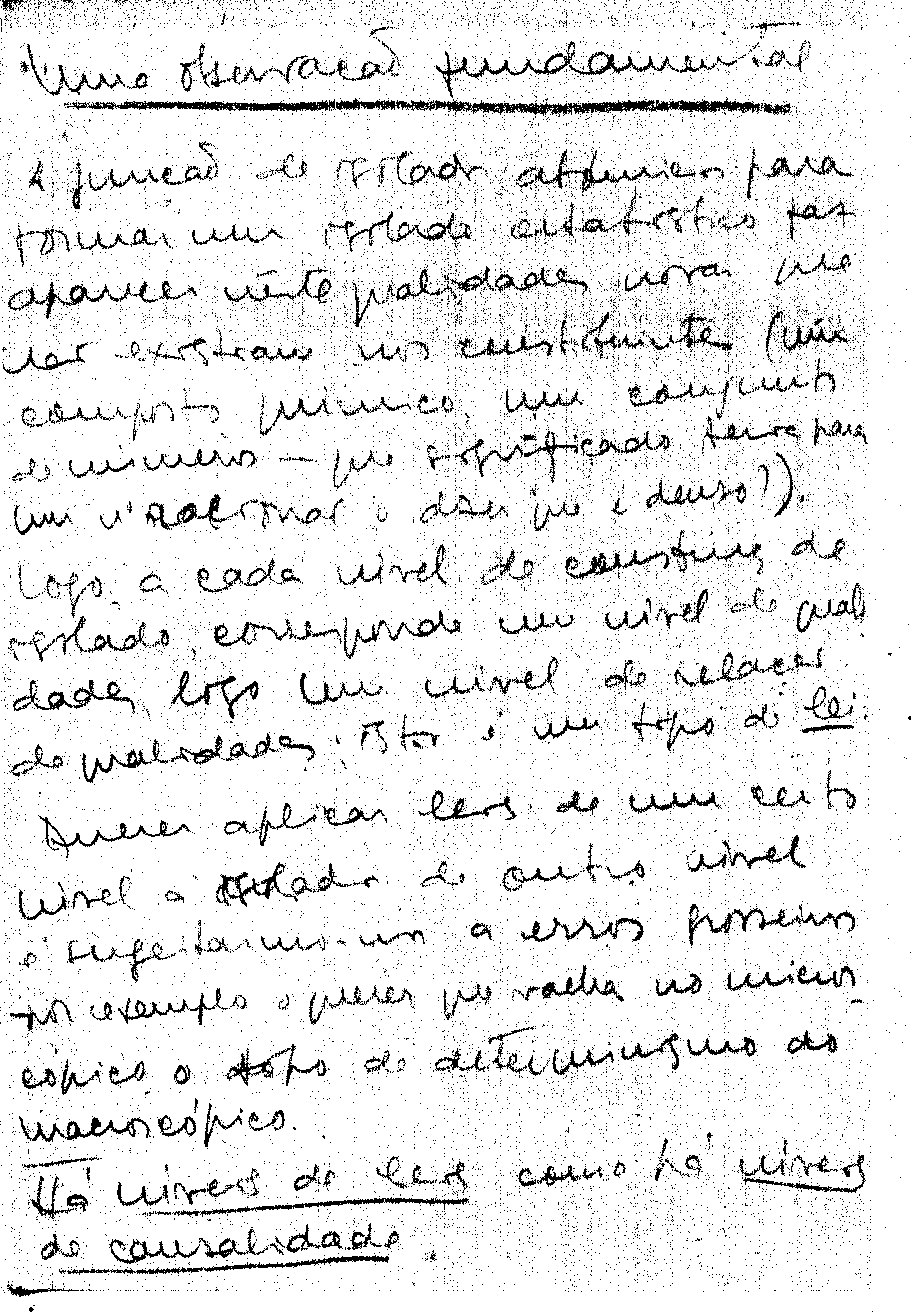 Uma observação fundamental
A junção de isolados atómicos para
formar um isolado estatístico faz
aparecer neste qualidades novas que
não existiam nos constituintes (num
composto químico, num conjunto
de números — que significado teria para
um nº racional o dizer que é denso?).
Logo, a cada nível de constituição de
isolado, corresponde um nível de quali
dades, logo um nível de relações
de qualidades; isto é um tipo de lei.
Querer aplicar leis de um certo
nível a isolados de outro nível
é sugeitarmo-nos a erros grosseiros
por exemplo o querer que valha no micros-
cópico o tipo de determinismo do
macroscópico.
Há níveis de leis como há níveis
de causalidade.